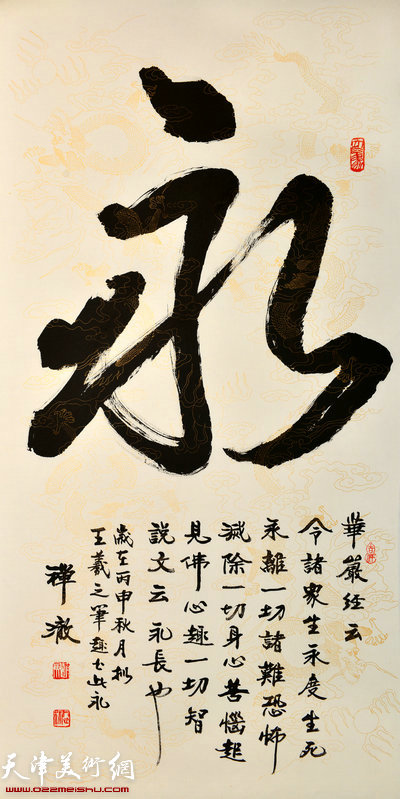 永
華嚴經云
令諸眾生永度生死
永離一切諸難恐怖
滅除一切身心苦惱起
見佛心趣一切智
說文云永長也
歲在丙申秋月擬
王羲之筆趣書此永
禪澈
天津美術網
www.022meishu.com